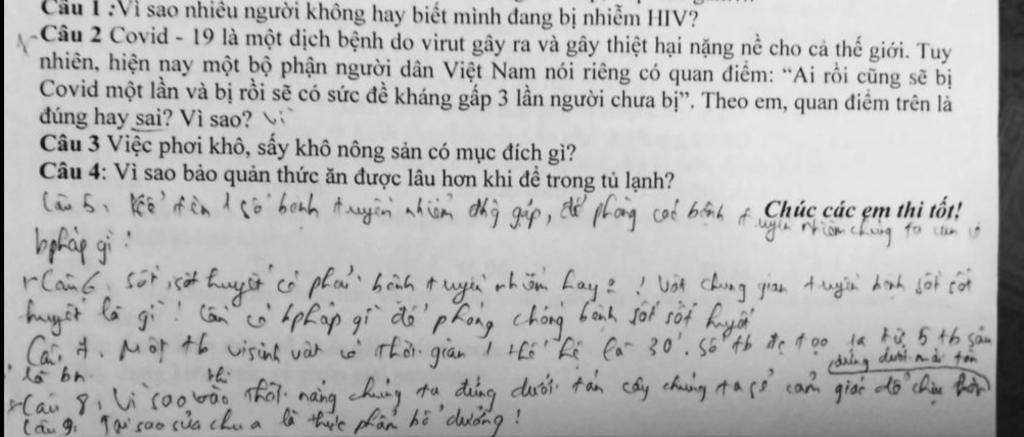 Câu 1 :Vì sao nhiều người không hay biết mình đang bị nhiễm HIV?
Câu 2 Covid - 19 là một dịch bệnh do virut gây ra và gây thiệt hại nặng nề cho cả thế giới. Tuy
nhiên, hiện nay một bộ phận người dân Việt Nam nói riêng có quan điểm: “Ai rồi cũng sẽ bị
Covid một lần và bị rồi sẽ có sức đề kháng gấp 3 lần người chưa bị”. Theo em, quan điểm trên là
đúng hay sai? Vì sao? Vì
Câu 3 Việc phơi khô, sấy khô nông sản có mục đích gì?
Câu 4: Vì sao bảo quản thức ăn được lâu hơn khi để trong tủ lạnh?
Chúc các em thi tốt!
Câu 5. Kể tên 1 số bệnh truyền nhiễm thg gặp, để phòng các bệnh truyền nhiễm chúng ta cần có
bpháp gì !
Câu 6. sốt xuất huyết có phải bệnh truyền nhiễm hay ? ! Vật trung gian truyền bệnh sốt xuất
huyết là gì ! Cần có bpháp gì để phòng chống bệnh sốt huyết
Câu 7. Một tb vi sinh vật có thời gian 1 thế hệ là 30'. Số tb đc tạo ra từ 5 tb
là bn
Câu 8. Vì sao vào thời nắng chúng ta đứng dưới tán cây chúng ta sẽ cảm giác dễ chịu hơn
đứng dưới mái tôn
Câu 9. Tại sao sữa chua là thực phẩm bổ dưỡng !